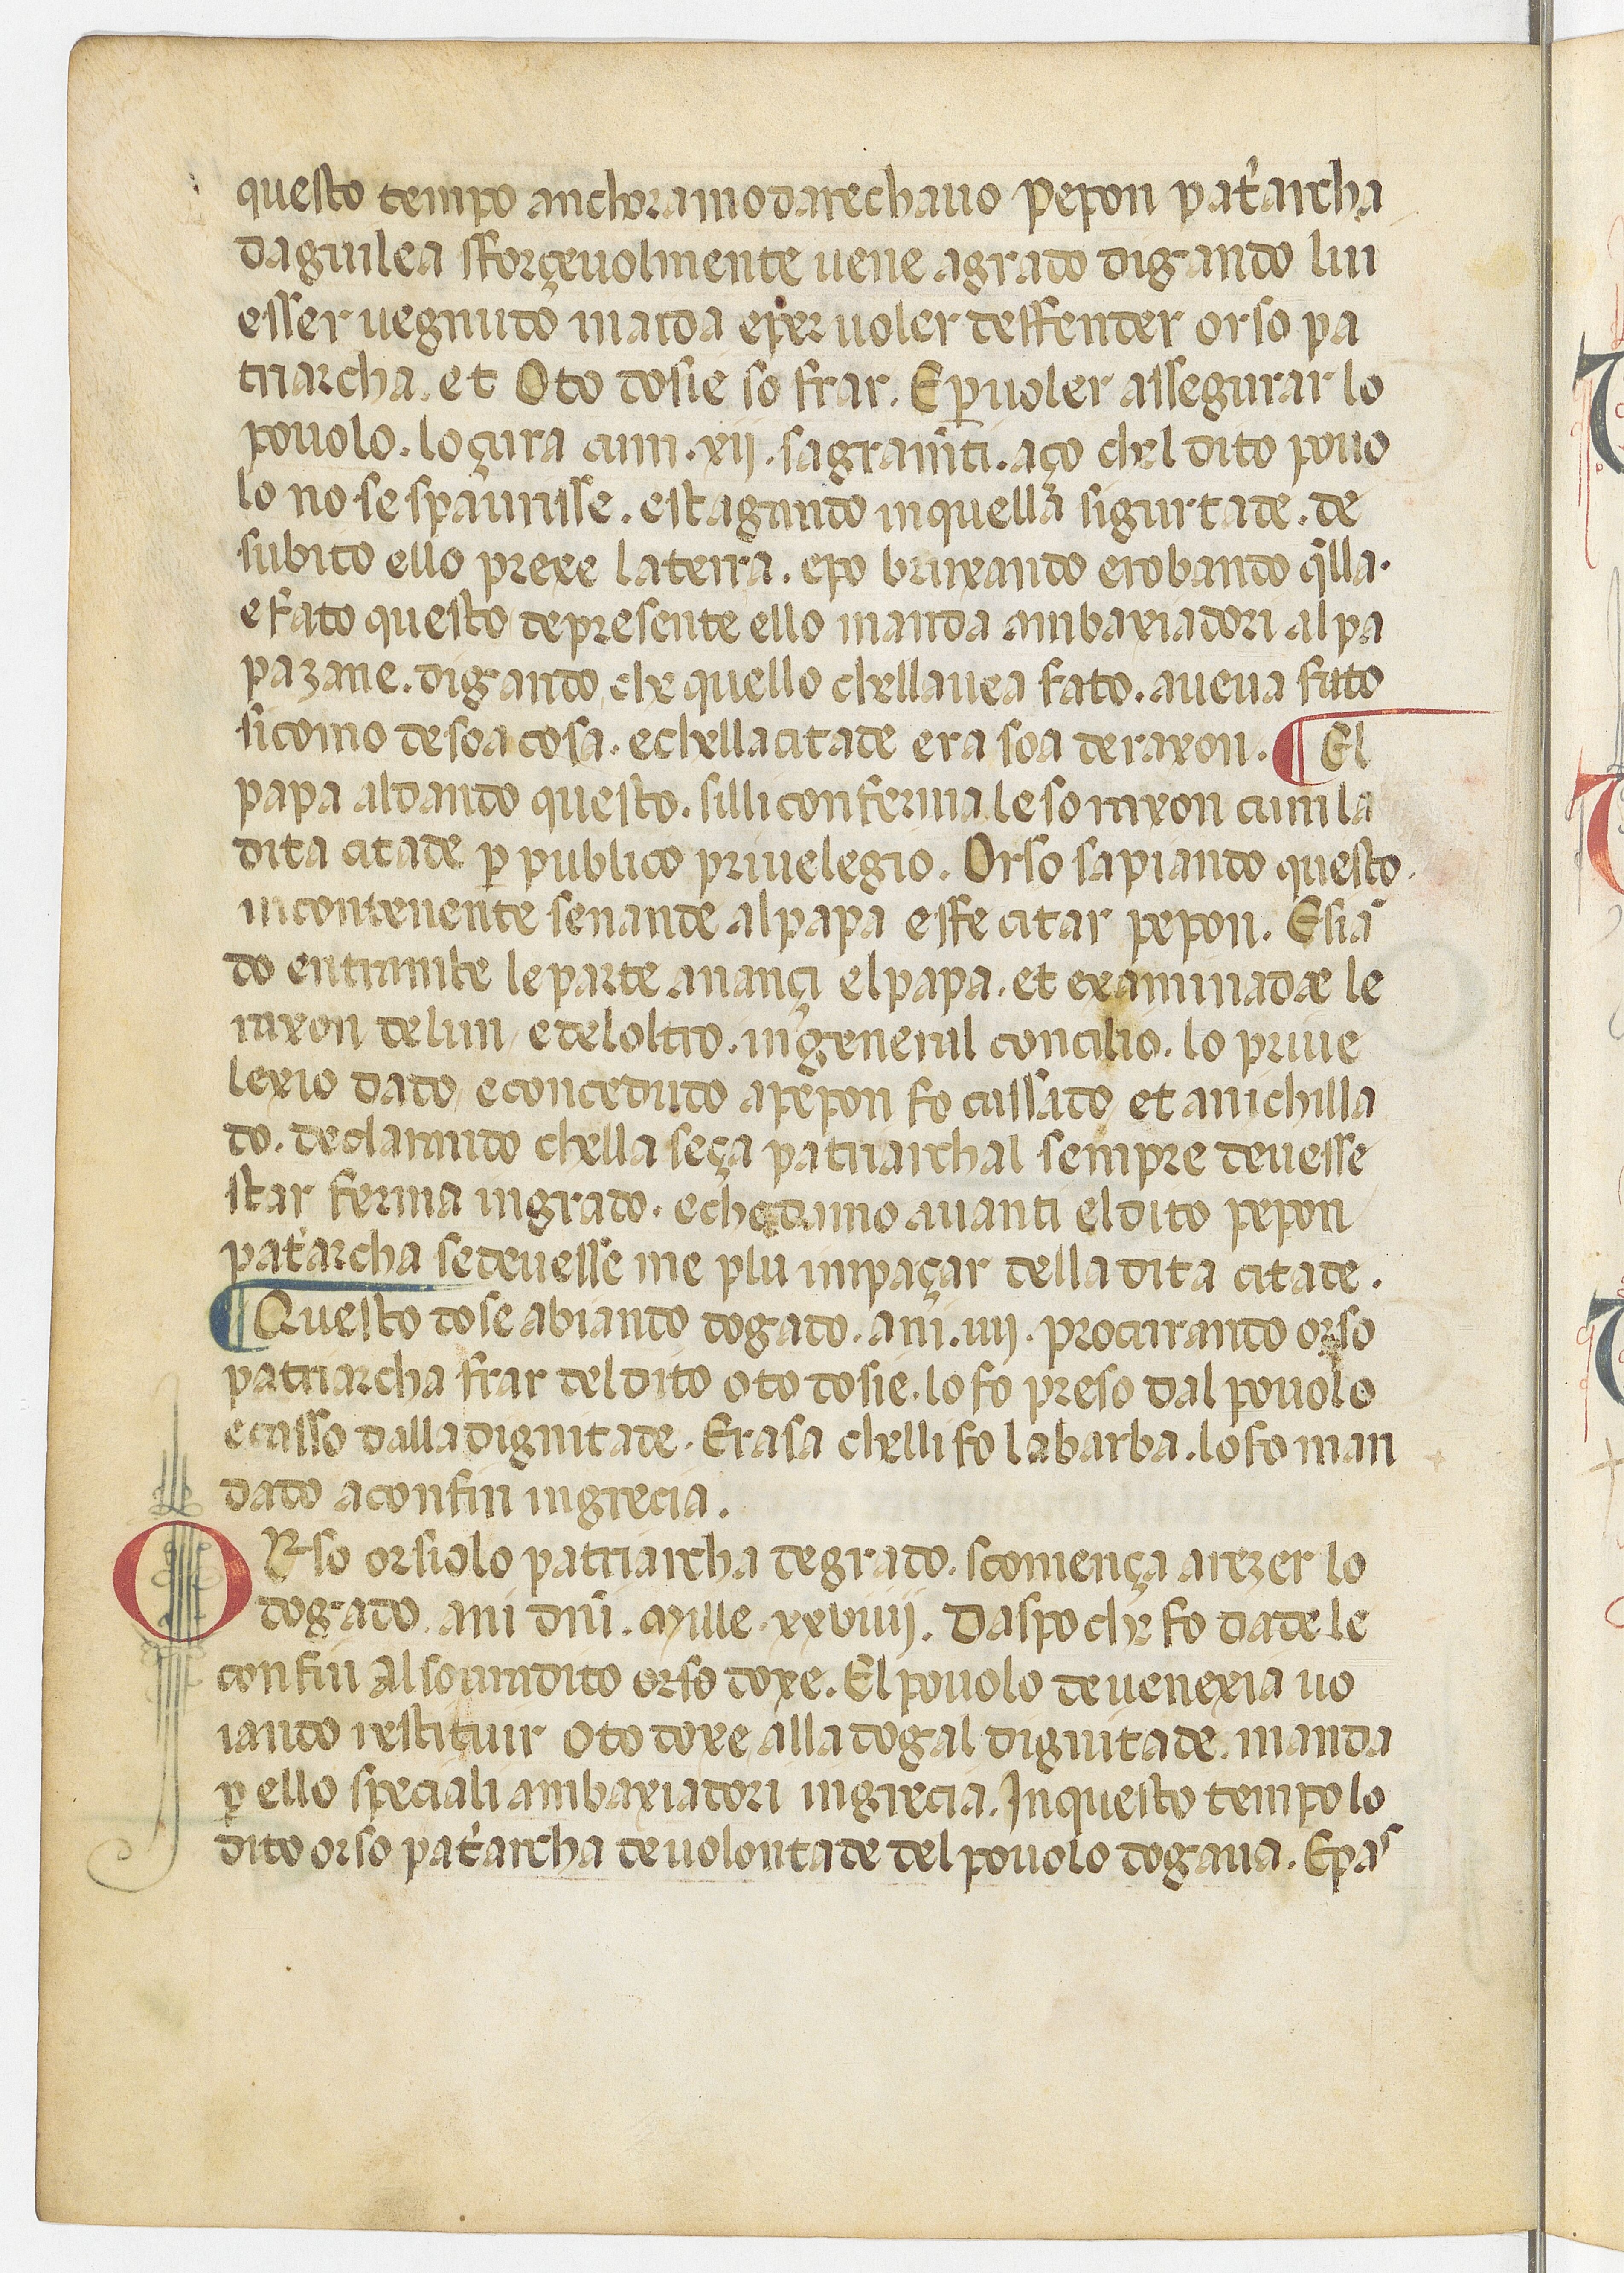 questo tempo anchora modarechauo Pepon pat'archa
daguilea sforçeuolmente uene agrado digando lui
esser uegnudo in aida eper uoler deffender orso pa
triarcha. et Oto dosie so frar. E ꝑ uoler assegurar lo
pouolo. lo çura cum. xij. sagram̄ti. aço chel dito pouo
lo no se spaurisse. estagando in quella sigurtade. de
subito ello prexe la terra. epo bruxando erobando q̄lla.
e fato questo depresente ello manda ambaxiadori al pa
pa zane. digando che quello chellauea fato. aueua fato
sicomo de soa cosa. echella citade era soa de raxon. ¶ El
papa aldando questo. silli conferma le so raxon cum la
dita citade ꝑ publico priuelegio. Orso sapiando questo.
incontenente senande al papa effe citar pepon. E siā
do entrambe le parte auançi el papa. et examinadae le
raxon de lun e deloltro. in general concilio. lo priue
lexio dado e conceduto a pepon fo cassado et anichilla
do. declarando chella seça patriarchal sempre deuesse
star ferma in grado. e che damo auanti el dito pepon
pat'archa se deuesse me plu impaçar della dita citade.
¶ Questo dose abiando dogado. ani. iiij. procurando orso
patriarcha frar del dito oto dosie. lo fo preso dal pouolo
e casso dalla dignitade. E rasa chelli fo la barba. lo fo man
dado a confin in grecia.
ORso orsiolo patriarcha de grado. scomença a rezer lo
dogado. ani dn̄i. Mille. xxviiij. Daspo che fo dade le
confin al souradito orso doxe. El pouolo de uenexia uo
iando restituir oto doxe alla dogal dignitade. manda
ꝑ ello speciali ambaxiadori in grecia. In questo tempo lo
dito orso pat'archa de uolontade del pouolo dogaua. E pas